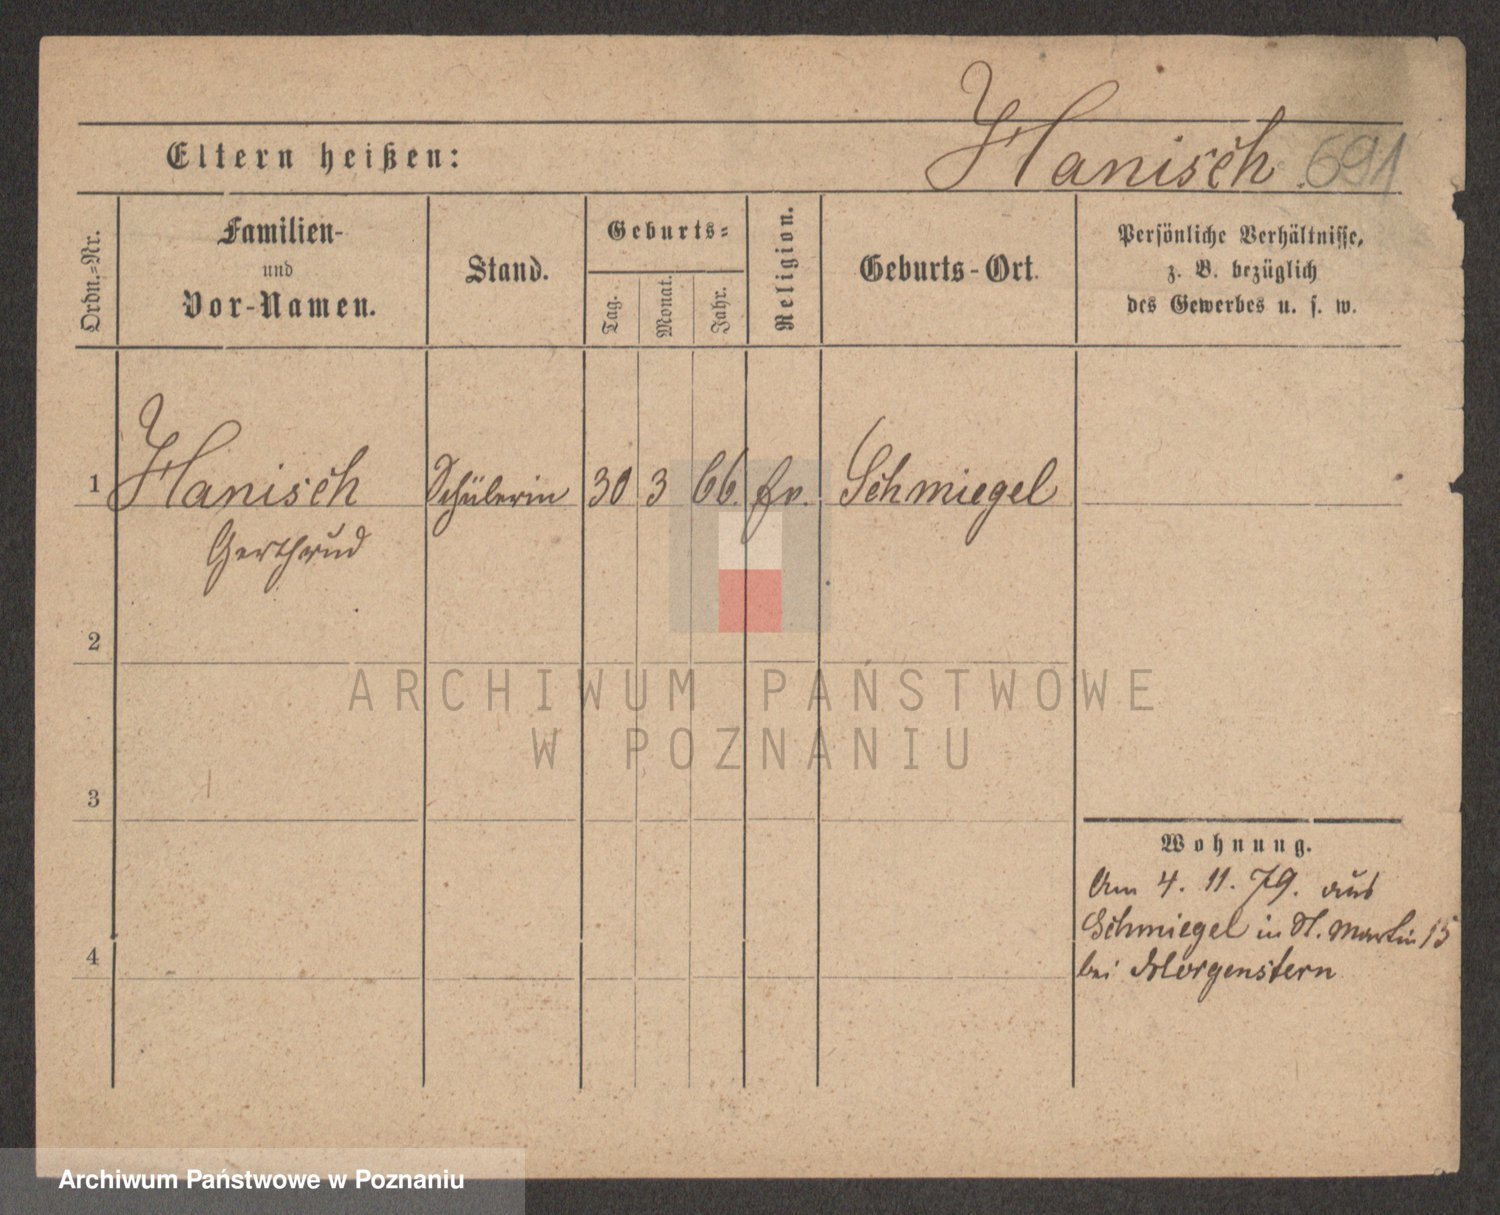 Hanisch 691
Eltern heißen:
Ordn.=Nr.
Familien-
und
Vor-Namen.
Stand.
Geburts=
Tag.
Monat.
Jahr.
Religion.
Geburts-Ort.
Persönliche Verhältnisse,
z. B. bezüglich
des Gewerbes u. s. w.
1 Hanisch Schülerin 30 3 66. Ev. Schmiegel
Gerthrud
2
ARCHIWUM PAŃSTWOWE
W POZNANIU
3
Wohnung.
Am 4. 11. 79. aus
Schmiegel in St. Martin 15
4
bei Morgenstern
Archiwum Państwowe w Poznaniu